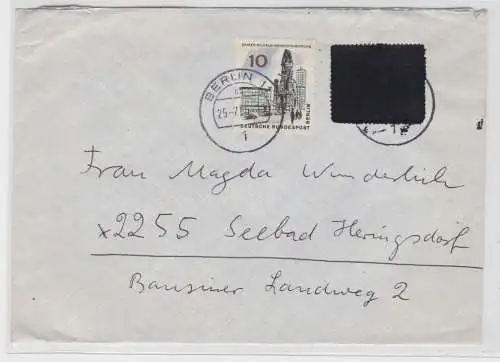 KAISER-WILHELM-GEDÄCHTNISKIRCHE
10
BERLIN
DEUTSCHE BUNDESPOST
BERLIN
1
Frau Magda Wunderlich
x2255 Seebad Heringsdorf
Bansiner Landweg 2